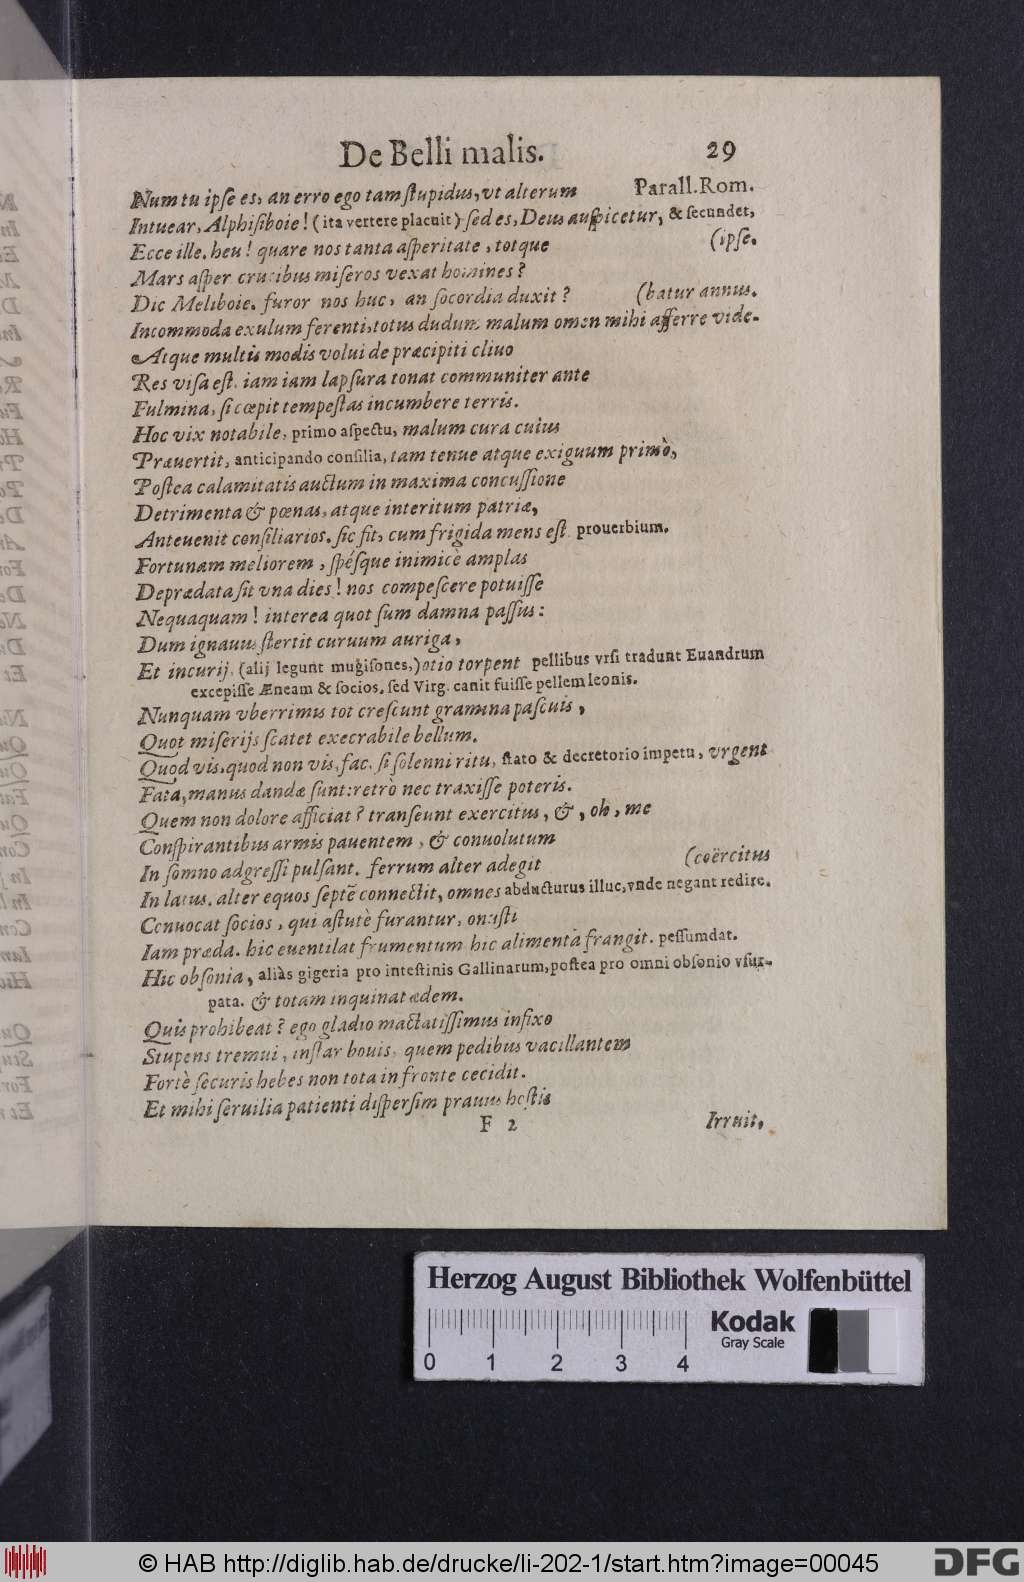 De Belli malis. 29
Num tu ipſe es, an erro ego tam ſtupidus, vt alterum Parall. Rom.
Intuear, Alphiſiboie! (ita vertere placuit) ſed es, Deus auſpicetur, & ſecundet,
Ecce ille. heu! quare nos tanta aſperitate, totque (ipſe.
Mars aſper crucibus miſeros vexat homines?
Dic Meliboie. furor nos huc, an ſocordia duxit? (batur annus.
Incommoda exulum ferenti, totus dudum malum omen mihi afferre vide-
Atque multis modis volui de præcipiti cliuo
Res viſa eſt. iam iam lapſura tonat communiter ante
Fulmina, ſi cœpit tempeſtas incumbere terris.
Hoc vix notabile, primo aſpectu, malum cura cuius
Præuertit, anticipando conſilia, tam tenue atque exiguum primò,
Poſtea calamitatis auctum in maxima concuſſione
Detrimenta & pœnas, atque interitum patriæ,
Anteuenit conſiliarios. ſic fit, cum frigida mens eſt prouerbium.
Fortunam meliorem, ſpéſque inimicè amplas
Deprædata ſit vna dies! nos compeſcere potuiſſe
Nequaquam! interea quot ſum damna paſſus:
Dum ignauus ſtertit curuum auriga,
Et incurij, (alij legunt mugiſones,) otio torpent pellibus vrſi tradunt Euandrum
excepiſſe Æneam & ſocios. ſed Virg. canit fuiſſe pellem leonis.
Nunquam vberrimis tot creſcunt gramina paſcuis,
Quot miſerijs ſcatet execrabile bellum.
Quod vis, quod non vis, fac. ſi ſolenni ritu, ſtato & decretorio impetu, vrgent
Fata, manus dandæ ſunt: retrò nec traxiſſe poteris.
Quem non dolore afficiat? tranſeunt exercitus, &, oh, me
Conſpirantibus armis pauentem, & conuolutum
In ſomno adgreſſi pulſant. ferrum alter adegit (coërcitus
In latus. alter equos ſeptē connectit, omnes abducturus illuc, vnde negant redire.
Conuocat ſocios, qui aſtutè furantur, onuſti
Iam præda. hic euentilat frumentum hic alimenta frangit. peſſumdat.
Hic obſonia, aliàs gigeria pro inteſtinis Gallinarum, poſtea pro omni obſonio vſur-
pata. & totam inquinat ædem.
Quis prohibeat? ego gladio mactatiſſimus infixo
Stupens tremui, inſtar bouis, quem pedibus vacillantem
Fortè ſecuris hebes non tota in fronte cecidit.
Et mihi ſeruilia patienti diſperſim prauus hoſtis
F 2 Irruit,
Herzog August Bibliothek Wolfenbüttel
0 1 2 3 4
Kodak
Gray Scale
© HAB http://diglib.hab.de/drucke/li-202-1/start.htm?image=00045
DFG